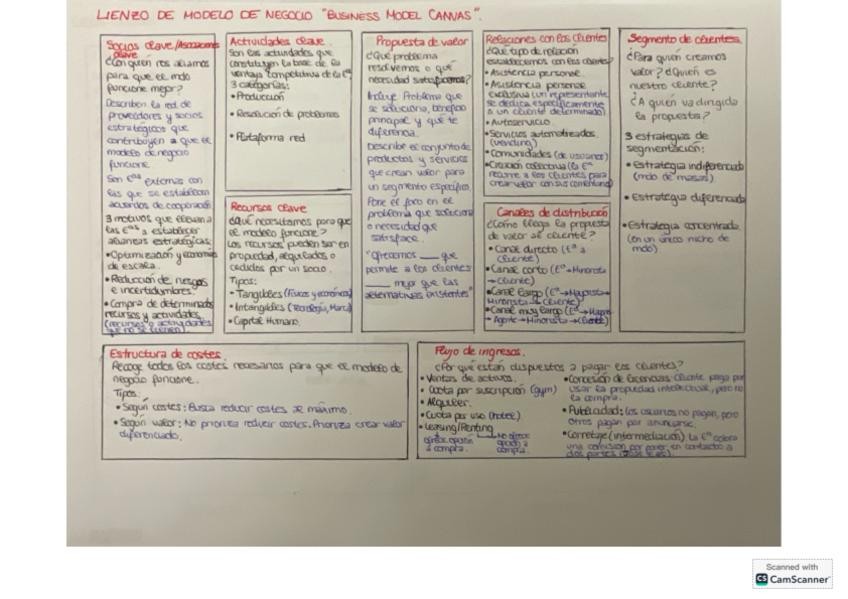 LIENZO DE MODELO DE NEGOCIO "BUSINESS MODEL CANVAS".
Socios clave/Asociaciones
clave
¿Con quien nos aliamos
para que el mdo
funcione mejor?
Describen la red de
proveedores y socios
estratégicos que
contribuyen a que el
modelo de negocio
funcione.
Son Eªs externas con
las que se establecen
acuerdos de cooperación
3 motivos que llevan a
las Eªs a establecer
alianzas estratégicas:
• Optimización y economía
de escala.
• Reducción de riesgos
e incertidumbres.
• Compra de determinados
recursos y actividades
(recursos o actividades
que no se tienen).
Actividades clave.
Son las actividades que
constituyen la base de la
ventaja competitiva de la Eª
3 categorías:
• Producción
• Resolución de problemas
• Plataforma red
Recursos clave
¿Qué necesitamos para que
el modelo funcione?
Los recursos pueden ser en
propiedad, alquilados o
cedidos por un socio.
Tipos:
• Tangibles (Físicos y económicos)
• Intangibles (Tecnología, Marca)
• Capital Humano.
Propuesta de valor
¿Qué problema
resolvemos o qué
necesidad satisfacemos?
Incluye Problema que
se soluciona, beneficio
principal y qué te
diferencia.
Describe el conjunto de
productos y servicios
que crean valor para
un segmento específico.
Pone el foco en el
problema que soluciona
o necesidad que
satisface.
"Ofrecemos ___ que
permite a los clientes
___ mejor que las
alternativas existentes"
Relaciones con los clientes
¿Qué tipo de relación
establecemos con los clientes?
• Asistencia personal.
• Asistencia personal
exclusiva (un representante
se dedica específicamente
a un cliente determinado)
• Autoservicio.
• Servicios automatizados.
(vending)
• Comunidades (de usuarios)
• Creación colectiva (la Eª
recurre a los clientes para
crear valor con sus comentarios)
Canales de distribución
¿Cómo llega la propuesta
de valor al cliente?
• Canal directo (Eª a
cliente)
• Canal corto (Eª→Minorista
→Cliente)
• Canal largo (Eª→Mayorista→
Minorista→Cliente)
• Canal muy largo (Eª→Mayor→
Agente→Minorista→Cliente)
Segmento de clientes
¿Para quién creamos
valor? ¿Quién es
nuestro cliente?
¿A quién va dirigida
la propuesta?
3 estrategias de
segmentación:
• Estrategia indiferenciada
(mdo de masas)
• Estrategia diferenciada
• Estrategia concentrada
(en un único nicho de
mdo)
Estructura de costes
Recoge todos los costes necesarios para que el modelo de
negocio funcione.
Tipos:
• Según costes: Busca reducir costes al máximo.
• Según valor: No prioriza reducir costes. Prioriza crear valor
diferenciado.
Flujo de ingresos.
¿Por qué están dispuestos a pagar los clientes?
• Ventas de activos.
• Cuota por suscripción (gym)
• Alquiler.
• Cuota por uso (hotel)
• Leasing/Renting
ofrece opción a compra. No ofrece opción a compra.
• Concesión de licencias: Cliente paga por
usar la propiedad intelectual, pero no
la compra.
• Publicidad: Los usuarios no pagan, pero
otros pagan por anunciarse.
• Corretaje (intermediación) La Eª cobra
una comisión por poner en contacto a
dos partes
Scanned with
CS CamScanner